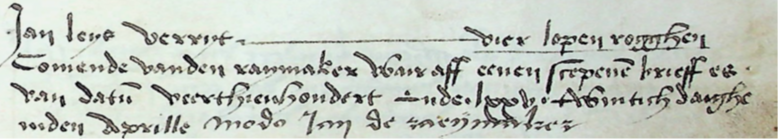 Jan leys verryt vier lopen rogghen
Comende vanden raymaker Wair aff eenen scepenē brieff es
van datū veerthienhondert ende lxxv twintich daighe
inden Aprille modo Jan de raeymaker